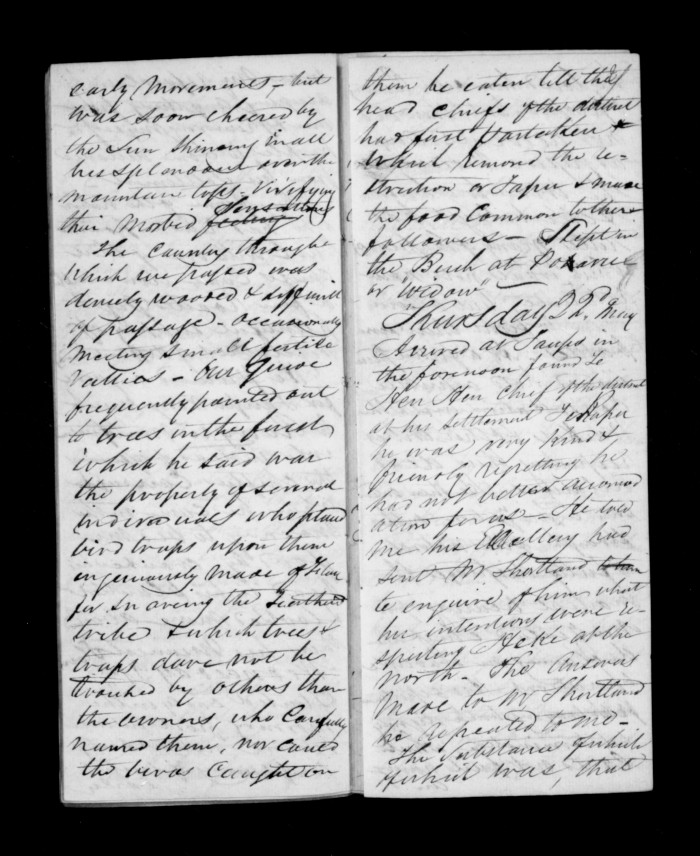 early movements - but
was soon cheered by
the Sun shining in all
his splendour over the
mountain tops - vivifying
their morbid feelings sensations
The Country through
which we passed was
densely wooded & difficult
of passage - occasionally
meeting small fertile
vallies - Our Guide
frequently pointed out
to trees in the forest
which he said was
the property of several
individuals who placed
bird traps upon them
ingeniously made of
for snaring the feathered
tribe & which trees &
traps dare not be
touched by others than
the owners, who Carefully
named them, nor could
the birds Caught on
them be eaten till the
head chiefs of the district
had first partaken
which removed the re-
striction or Tapu & made
the food Common to there
followers - Slept in
the Bush at
or "Widow"
Thursday 22d. May
Arrived at Taupo in
the forenoon found Te
Heu Heu Chief of the district
at his settlement Te Rapa
he was very kind &
friendly regretting he
had not better accomod
ation for us - He told
me his Excellency had
sent Mr Shortland to him
to enquire of him what
his intentions were re-
specting Heke at the
north - The Answers
made to Mr Shortland
he repeated to me -
The Substance of which
of which was, that